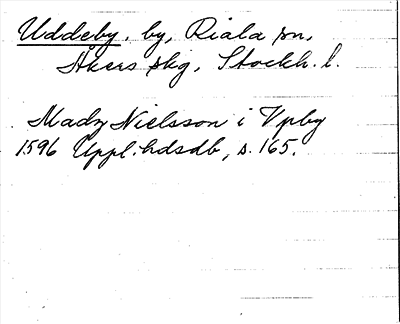 Uddeby, by, Riala sn,
Åkers skg, Stockh. l.
Madz Nielsson i Vpby
1596 Uppl. hdsdb, s. 165.